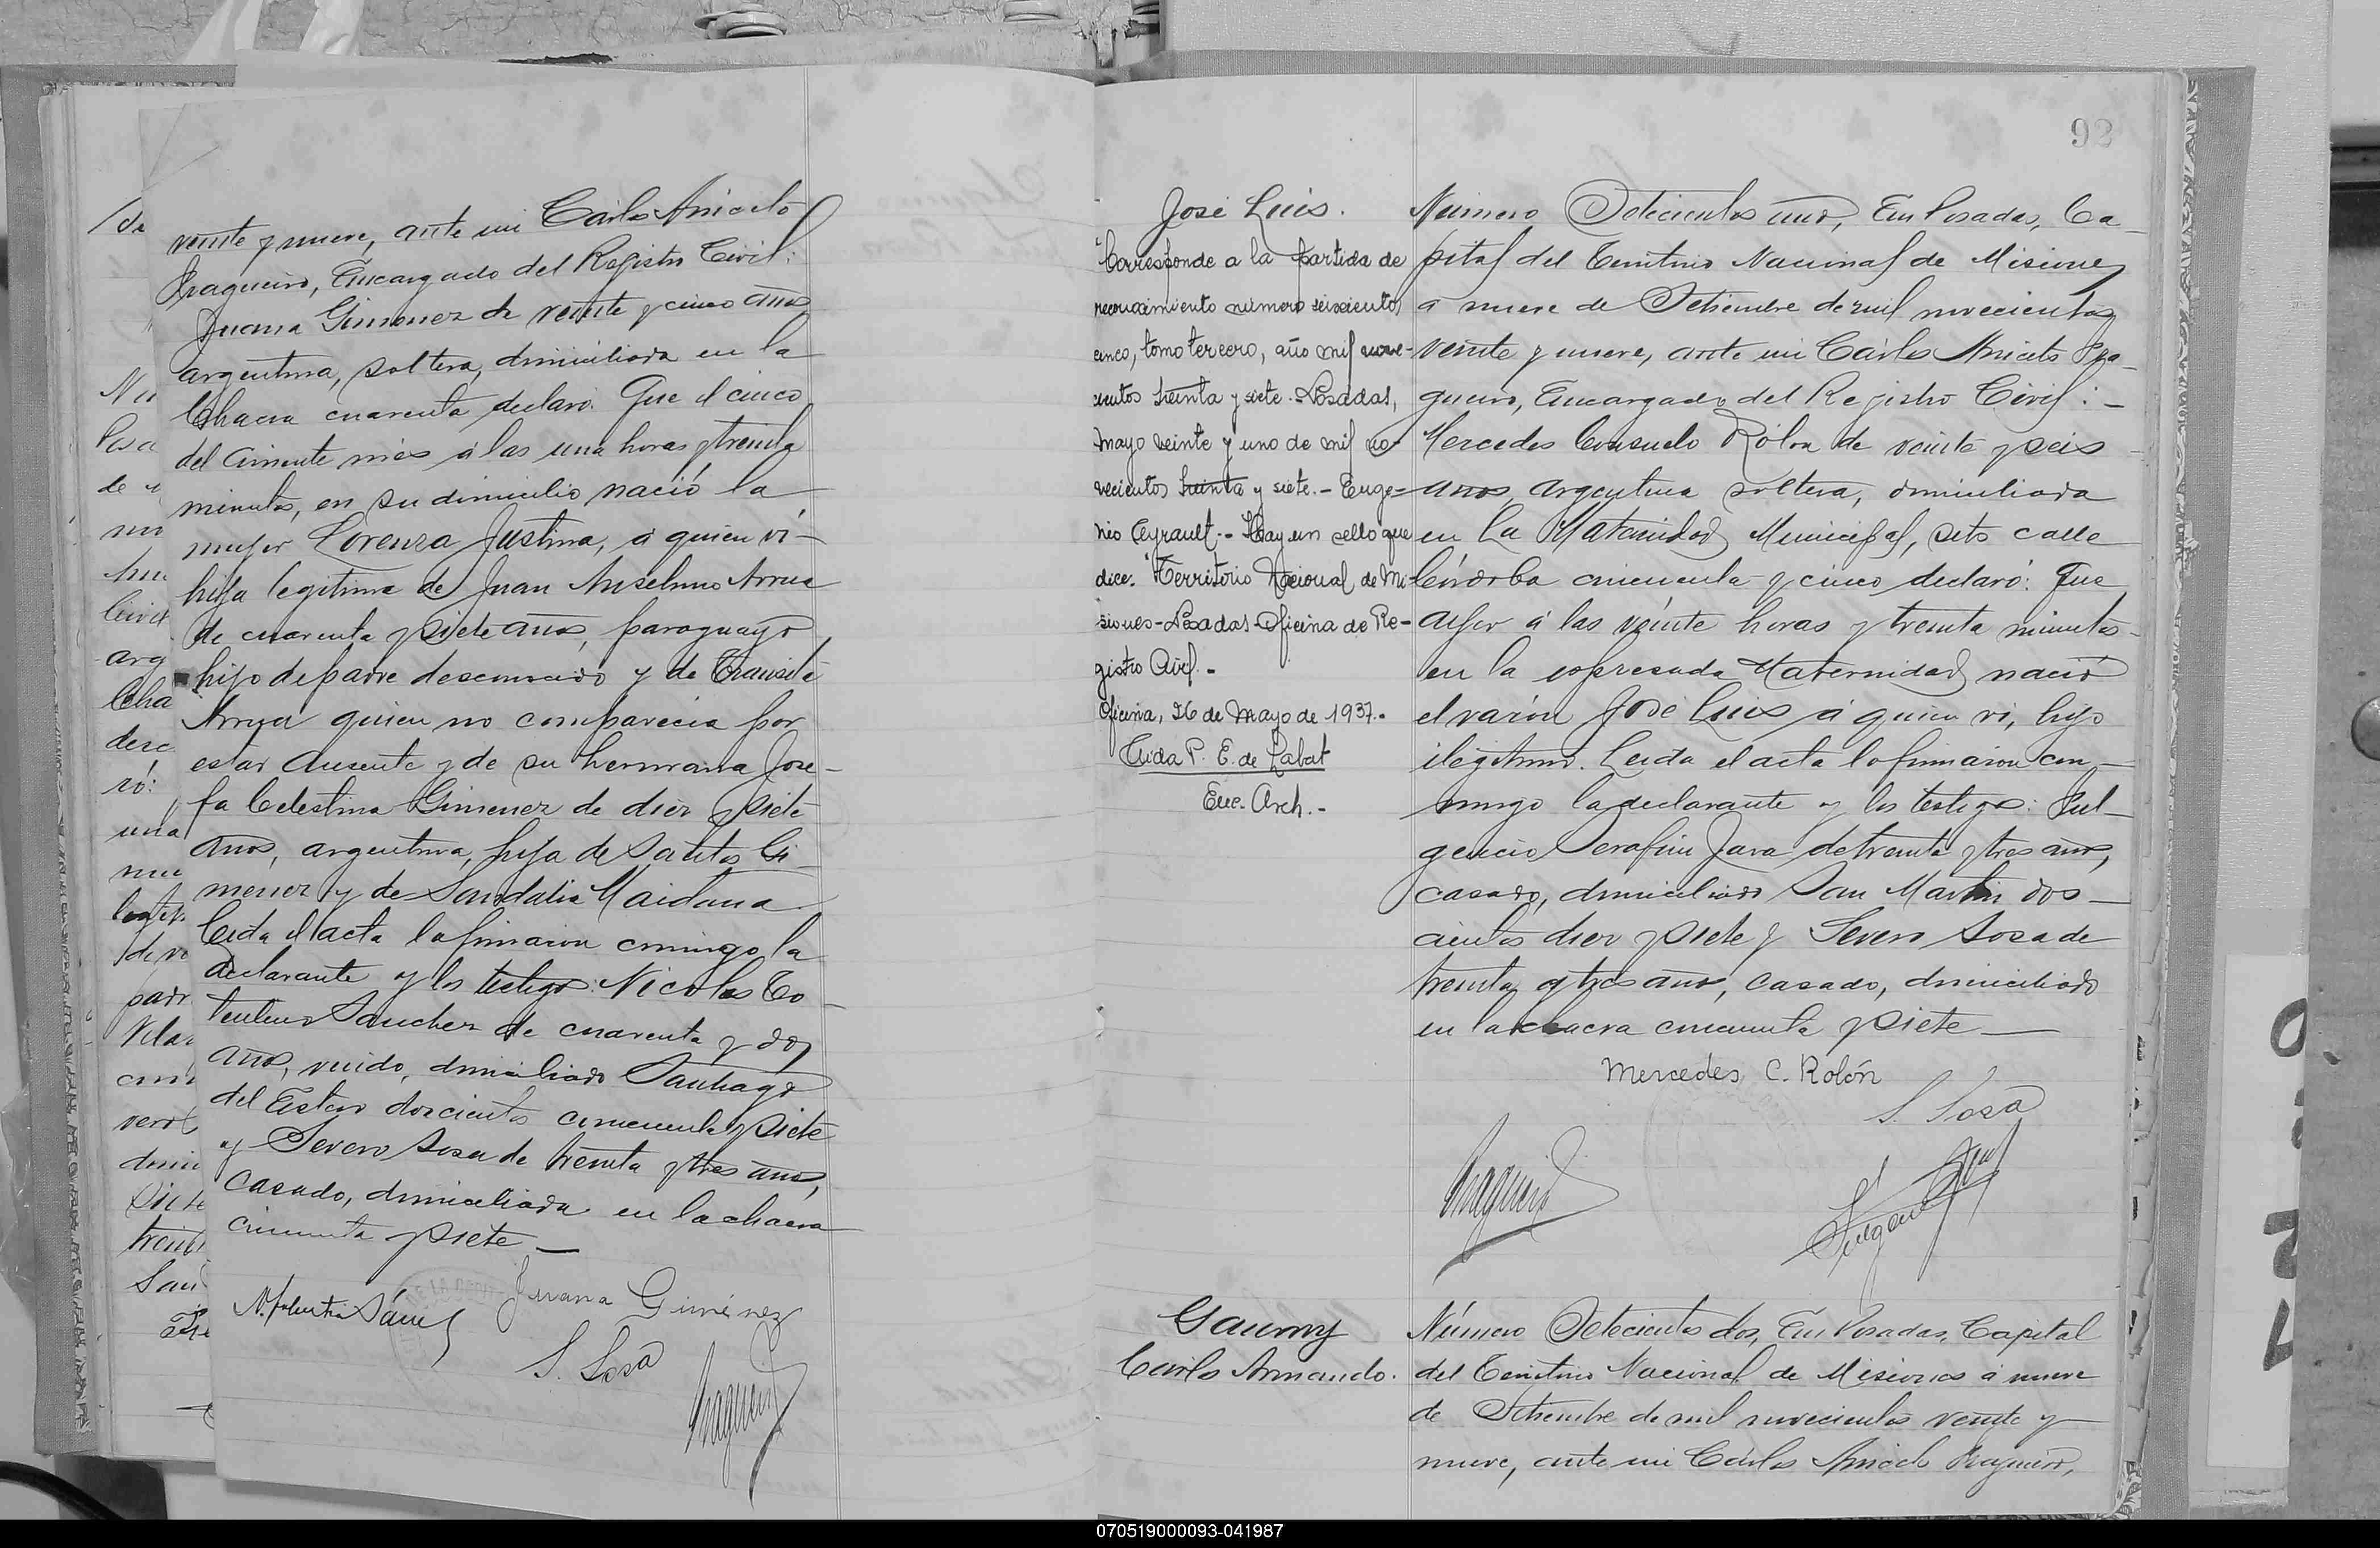 veinte y nueve, ante mi Carlos Aniceto
Fragueiro, Encargado del Registro Civil:
Juana Gimenez de veinte y cinco años
argentina, soltera, domiciliada en la
Chacra cuarenta declaró: Que el cinco
del corriente mes á las una horas y treinta
minutos, en su domicilio nació la
mujer Lorenza Justina, a quien vi
hija legitima de Juan Anselmo Arrua
de cuarenta y siete años, paraguayo
hijo de padre desconocido y de Transito
Arrua quien no comparecia por
estar ausente y de su hermana Jose-
fa Celestina Gimenez de diez y siete
años, argentina, hija de Santos Gi-
menez y de Sandalia Maidana
Leida el acta la firmaron conmigo la
declarante y los testigos: Nicolas To-
lentino Sanchez de cuarenta y dos
años, viudo, domiciliado Santiago
del Estero doscientos cincuenta y siete
y Severo Sosa de treinta y tres años,
casado, domiciliado en la chacra
cincuenta y siete
Juana Giménez
S. Sosa
92
José Luis.
"Corresponde a la partida de
reconocimiento número seiscientos
cinco, tomo tercero, año mil nove-
cientos treinta y siete. Posadas,
mayo veinte y uno de mil no-
vecientos treinta y siete. - Euge-
nio Ceyrault. - Hay un sello que
dice: "Territorio Nacional de Mi-
siones - Posadas - Oficina de Re-
gistro Civil. -
Oficina, 26 de Mayo de 1937. -
Aida P. E. de Labat
Enc. Arch. -
Número Setecientos uno, En Posadas, Ca-
pital del Territorio Nacional de Misiones
a nueve de Setiembre de mil novecientos
veinte y nueve, ante mi Carlos Aniceto Fra-
gueiro, Encargado del Registro Civil: -
Mercedes Consuelo Rolon de veinte y seis
años, argentina soltera, domiciliada
en la Maternidad Municipal, sito calle
Córdoba cincuenta y cinco declaró: Que
ayer á las veinte horas y treinta minutos
en la expresada Maternidad nació
el varón José Luis á quien vi, hijo
ilegitimo. Leida el acta la firmaron con-
migo la declarante y los testigos: Ful-
gencio Serafin Jara de treinta y tres años,
casado, domiciliado San Martin dos-
cientos diez y siete y Severo Sosa de
treinta y tres años, casado, domiciliado
en la chacra cincuenta y siete
Mercedes C. Rolón
S. Sosa
Gauvry
Carlos Armando.
Número Setecientos dos, En Posadas, Capital
del Territorio Nacional de Misiones á nueve
de Setiembre de mil novecientos veinte y
nueve, ante mi Carlos Aniceto Fragueiro,
070519000093-041987